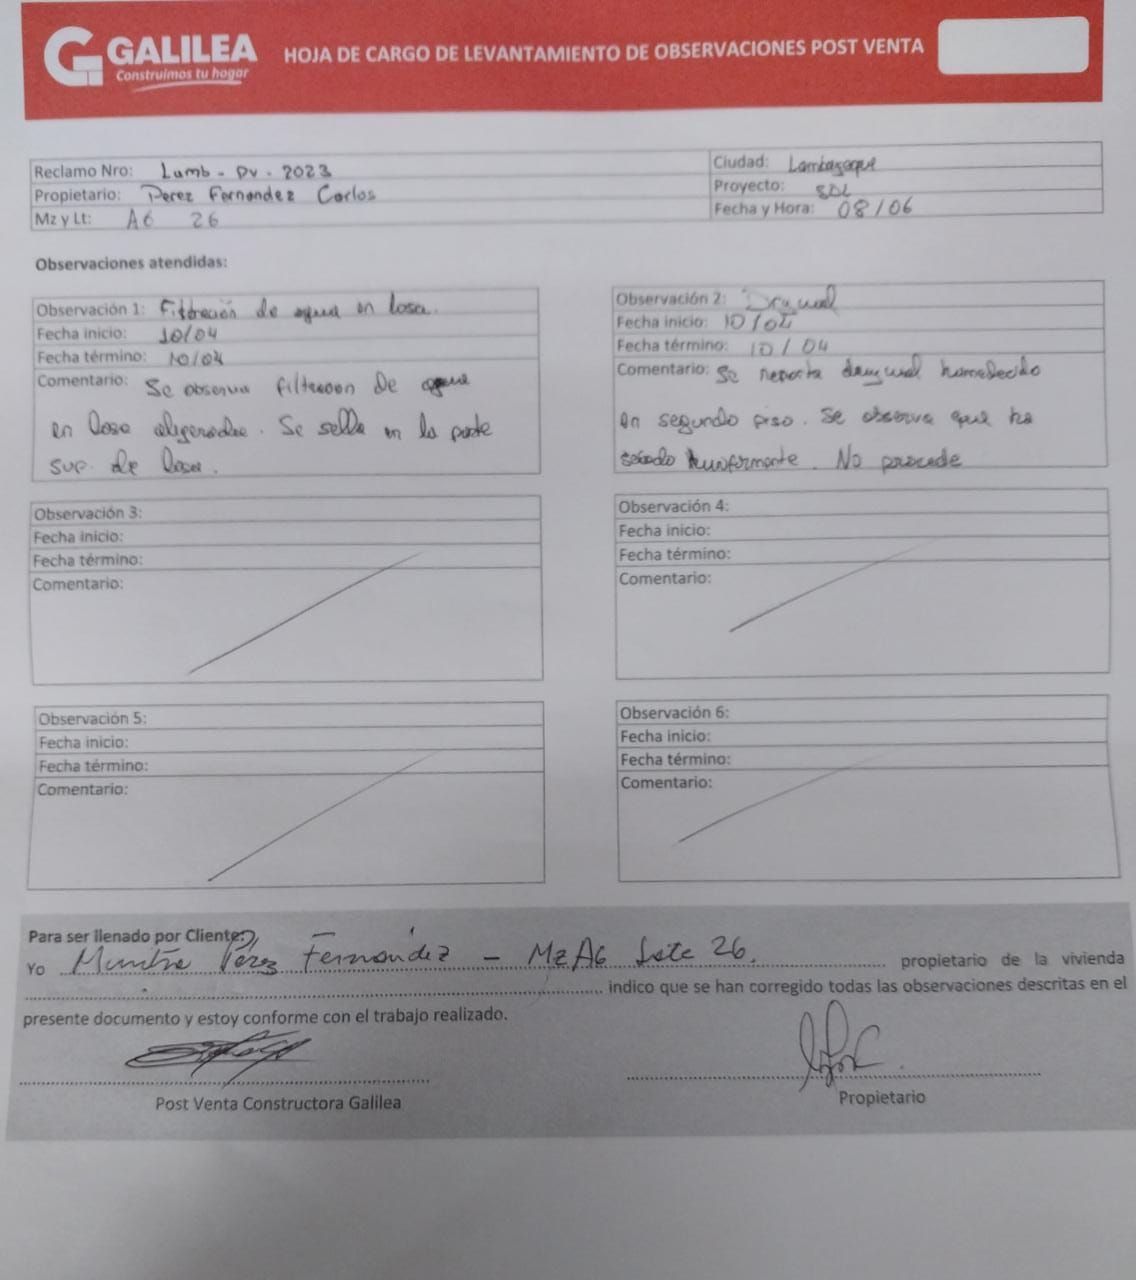 GALILEA
Construimos tu hogar
HOJA DE CARGO DE LEVANTAMIENTO DE OBSERVACIONES POST VENTA
Reclamo Nro: Lamb - PV - 2023
Ciudad: Lambayeque
Propietario: Perez Fernandez Carlos
Proyecto: SDL
Mz y Lt: A6 26
Fecha y Hora: 08/06
Observaciones atendidas:
Observación 1: Filtración de agua en losa.
Fecha inicio: 10/04
Fecha término: 10/04
Comentario: Se observa filtracion De agua
en losa aligerada. Se sella en la parte
sup. de losa.
Observación 2: Drywall
Fecha inicio: 10/04
Fecha término: 10/04
Comentario: Se reporta drywall humedecido
en segundo piso. Se observa que ha
secado uniformente. No procede
Observación 3:
Fecha inicio:
Fecha término:
Comentario:
Observación 4:
Fecha inicio:
Fecha término:
Comentario:
Observación 5:
Fecha inicio:
Fecha término:
Comentario:
Observación 6:
Fecha inicio:
Fecha término:
Comentario:
Para ser llenado por Cliente:
Yo Pérez Fernández - Mz A6 Lote 26. propietario de la vivienda
indico que se han corregido todas las observaciones descritas en el
presente documento y estoy conforme con el trabajo realizado.
Post Venta Constructora Galilea
Propietario